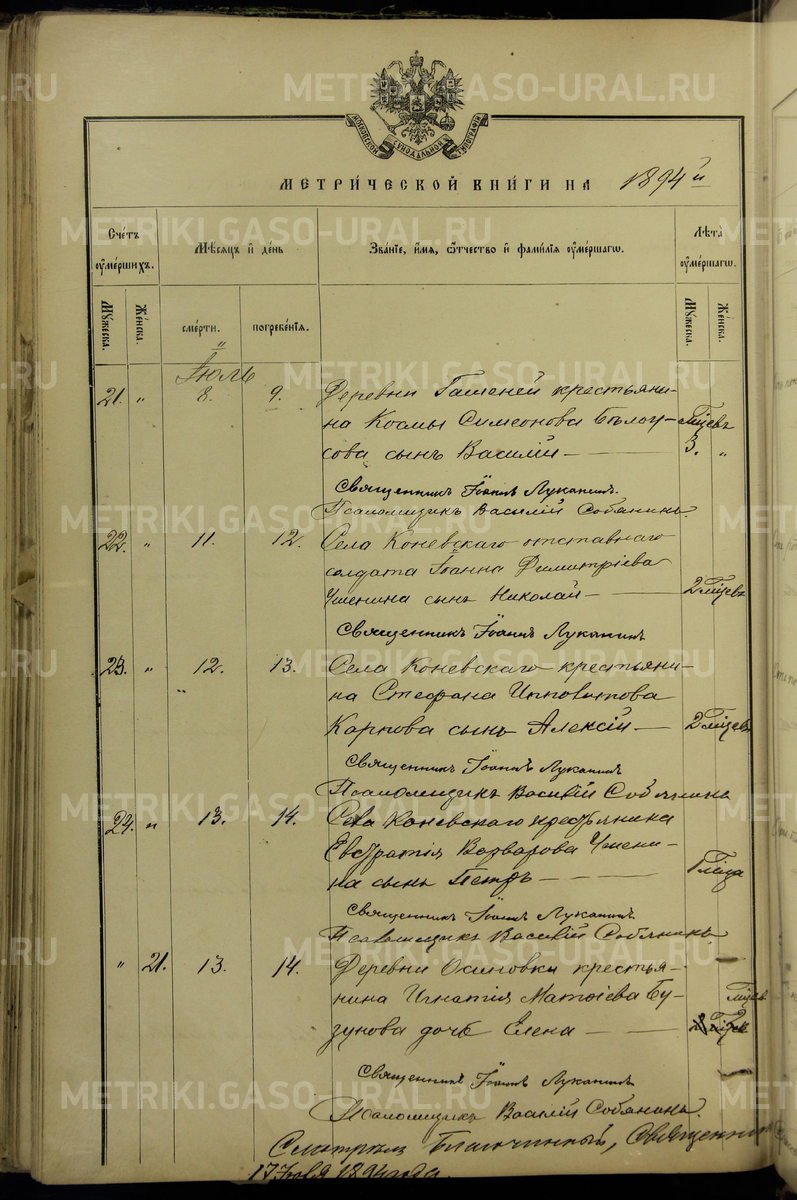 METRIKI.GASO-URAL.RU
МОСКОВСКОЙ СѴНОДАЛЬНОЙ ТѴПОГРАФІИ
МЕТРИ́ЧЕСКОЙ КНИ́ГИ НА 1894 й
Сче́тъ оу҆ме́ршихъ.
Мѣ́сяцъ и҆ де́нь
Зва́нїе, и҆́мя, ѻ҆́тчество и҆ фами́лїя оу҆ме́ршагѡ.
Лѣ́та оу҆ме́ршагѡ.
Мꙋ́жеска.
Же́нска.
сме́рти.
погребе́нїя.
Мꙋ́жеска.
Же́нска.
Іюль
21. " 8. 9. Деревни Гашеней крестьяни-
на Космы Симеонова Бѣлоу- Мцевъ
сова сынъ Василій — 3. "
Священникъ Іоаннъ Луканинъ.
Псаломщикъ Василій Собянинъ.
22. " 11. 12. Села Коневскаго отставнаго
солдата Іоанна Димитріева
Ушенина сынъ Николай — 2 мцевъ
Священникъ Іоаннъ Луканинъ
23. " 12. 13. Села Коневскаго крестьяни-
на Стефана Ипполитова
Карпова сынъ Алексій — 2 мцевъ
Священникъ Іоаннъ Луканинъ
Псаломщикъ Василій Собянинъ
24. " 13. 14. Села Коневскаго крестьянина
Евстратія Варварова Ушени-
на сынъ Петръ — 1 мца
Священникъ Іоаннъ Луканинъ
Псаломщикъ Василій Собянинъ.
" 21. 13. 14. Деревни Осиновки крестья-
нина Игнатія Матѳіева Бу- мцев
зунова дочь Елена —
Священникъ Іоаннъ Луканинъ
Псаломщикъ Василій Собянинъ.
Смотрѣлъ Благочинный, Священникъ
17 Іюля 1894 года.